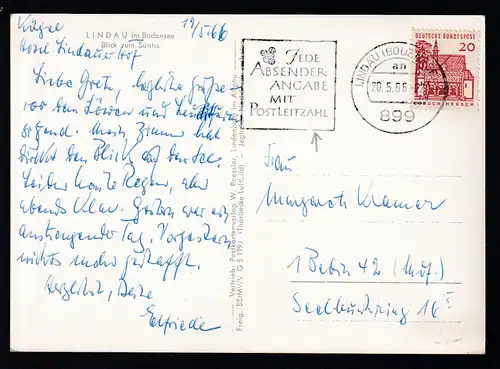 Kügel
Hotel Lindauer Hof
19/5.66
LINDAU im Bodensee
Blick zum Säntis
Liebe Grete, herzliche Grüße
vor dem Löwen und
sitzend. Mein Zimmer hat
direkt den Blick auf den See.
Leider heute Regen, aber
abends klar. Gestern war ein
anstrengender Tag. Vorgestern
nichts mehr geschafft.
Herzlichst, Deine
Elfriede
Vertrieb: Postkartenverlag W. Roessler, Lindenberg im Allgäu
Freig. BStMWV G 5/1993 (Thorbecke-Luftbild)
JEDE
ABSENDER-
ANGABE
MIT
POSTLEITZAHL
LINDAU (BODENSEE)
an
20.5.66
899
DEUTSCHE BUNDESPOST
20
Frau
Margarete Kramer
1 Berlin 42 (Mdf.)
Seelbuschring 16